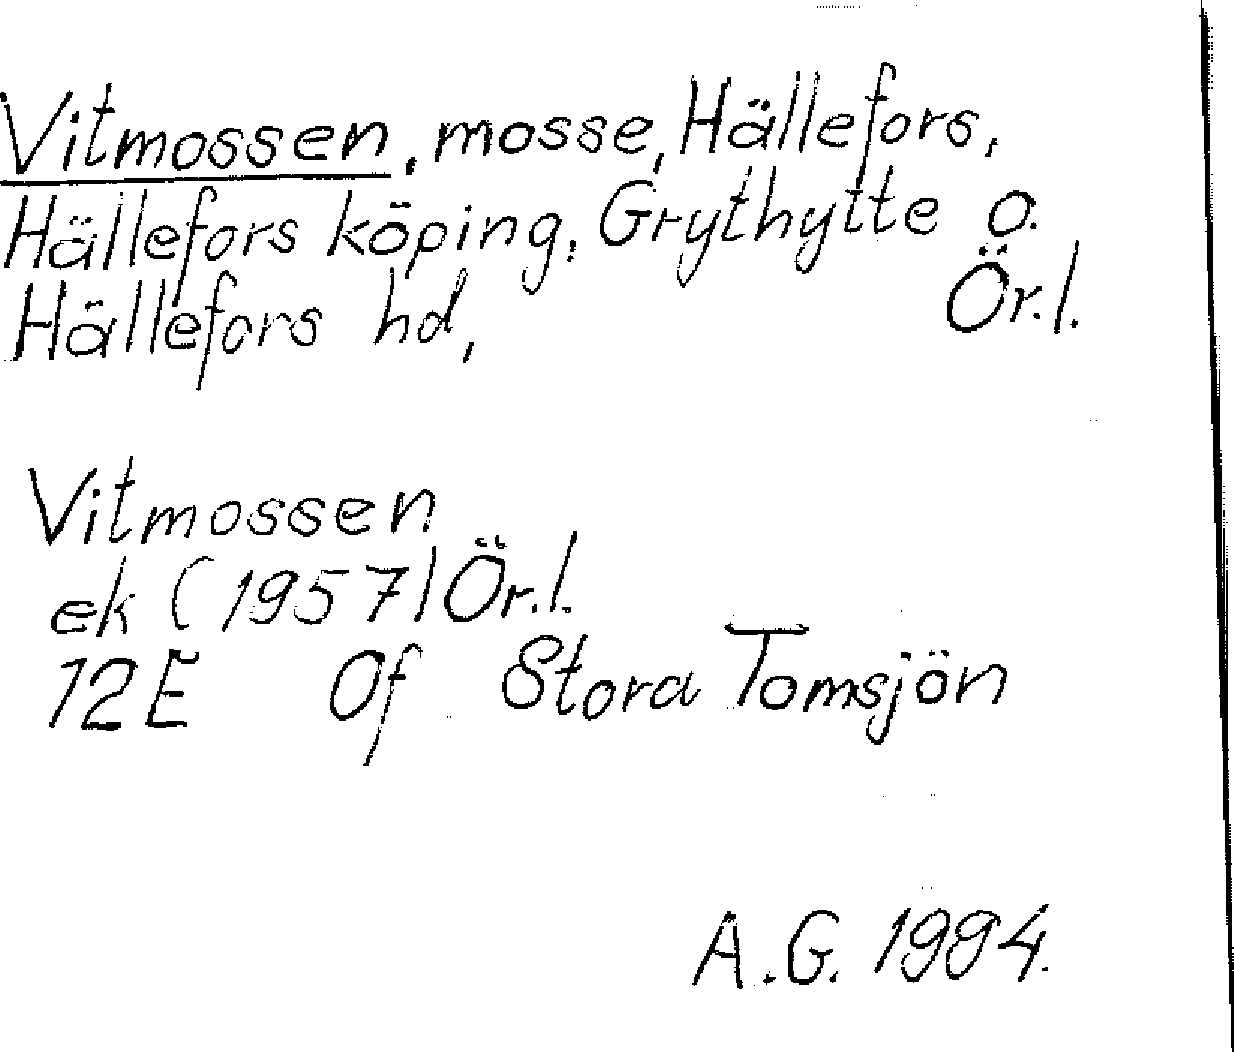 Vitmossen, mosse, Hällefors,
Hällefors köping, Grythytte o.
Hällefors hd, Ör.l.
Vitmossen
ek (1957) Ör.l.
12E Of Stora Tomsjön
A.G. 1994.